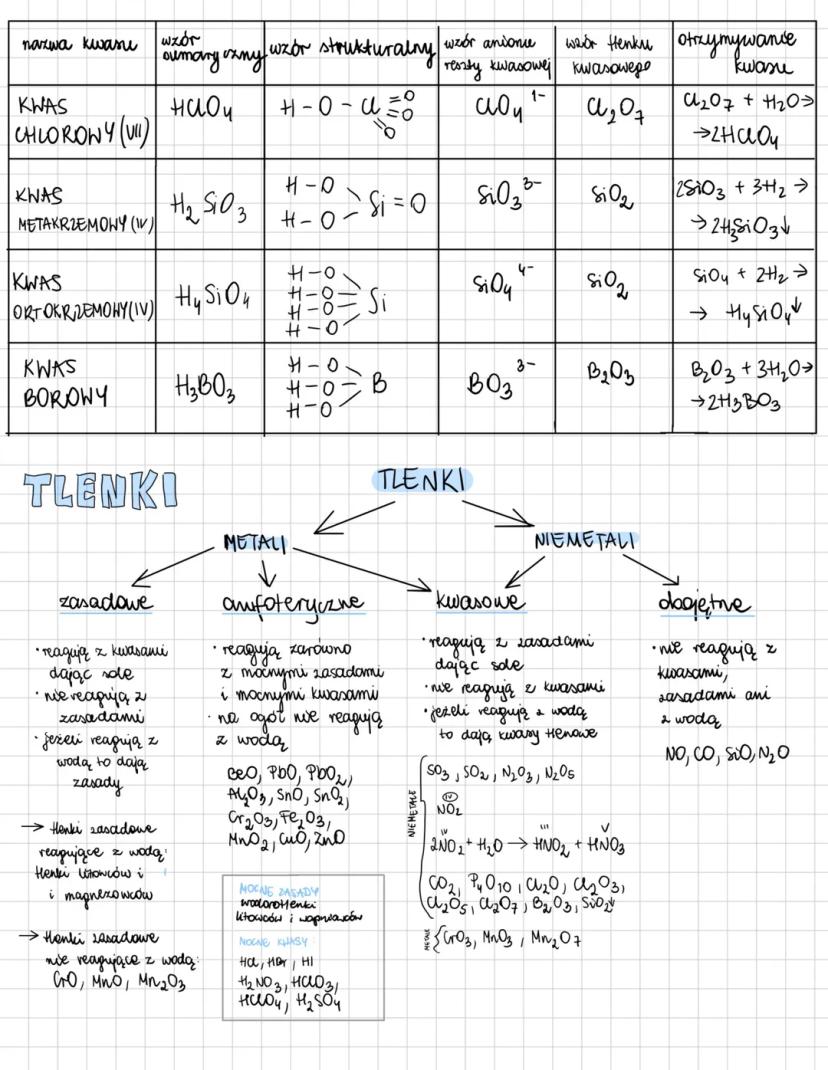 nazwa kwasu
wzór sumaryczny
wzór strukturalny
wzór anionu reszty kwasowej
wzór tlenku kwasowego
otrzymywanie kwasu
KWAS
CHLOROWY (VII)
HClO4
H - O - Cl =O =O =O
ClO4 1-
Cl2O7
Cl2O7 + H2O →
→ 2HClO4
KWAS
METAKRZEMOWY (IV)
H2SiO3
H - O
H - O
Si = O
SiO3 3-
SiO2
2SiO3 + 3H2 →
→ 2H3SiO3↓
KWAS
ORTOKRZEMOWY (IV)
H4SiO4
H - O
H - O
H - O
H - O
Si
SiO4 4-
SiO2
SiO4 + 2H2 →
→ H4SiO4↓
KWAS
BOROWY
H3BO3
H - O
H - O
H - O
B
BO3 3-
B2O3
B2O3 + 3H2O →
→ 2H3BO3
TLENKI
TLENKI
METALI
NIEMETALI
zasadowe
• reagują z kwasami
dając sole
• nie reagują z
zasadami
• jeżeli reagują z
wodą to dają
zasady
→ tlenki zasadowe
reagujące z wodą:
tlenki litowców i
i magnezowców
→ tlenki zasadowe
nie reagujące z wodą:
CrO, MnO, Mn2O3
amfoteryczne
• reagują zarówno
z mocnymi zasadami
i mocnymi kwasami
• na ogół nie reagują
z wodą
BeO, PbO, PbO2,
Al2O3, SnO, SnO2,
Cr2O3, Fe2O3,
MnO2, CuO, ZnO
MOCNE ZASADY
wodorotlenki
litowców i wapniowców
MOCNE KWASY:
HCl, HBr, HI
H2NO3, HClO3,
HClO4, H2SO4
kwasowe
• reagują z zasadami
dając sole
• nie reagują z kwasami
• jeżeli reagują z wodą
to dają kwasy tlenowe
NIEMETALE
SO3, SO2, N2O3, N2O5
IV
NO2
IV III V
2NO2 + H2O → HNO2 + HNO3
CO2, P4O10, Cl2O, Cl2O3,
Cl2O5, Cl2O7, B2O3, SiO2↓
METALE
CrO3, MnO3, Mn2O7
obojętne
• nie reagują z
kwasami,
zasadami ani
z wodą
NO, CO, SiO, N2O